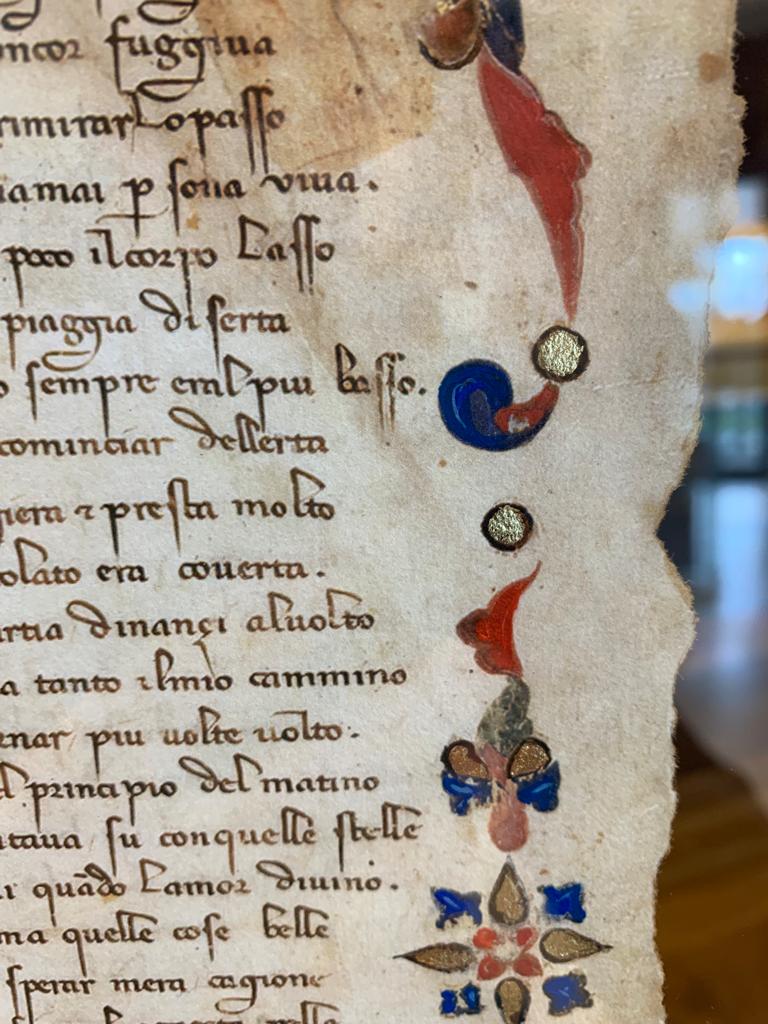 ncor fuggiua
rimirar Lo passo
iamai p̲ sona viua.
poco il corpo Lasso
piaggia diserta
o sempre eral piu basso.
cominciar dellerta
giera ⁊ presta molto
olato era couerta.
rtia dinançi aluolto
a tanto ilmio cammino
rnar piu uolte uolto.
l principio del matino
ntaua su conquelle stelle
i quādo Lamor diuino.
ma quelle cose belle
sperar mera cagione